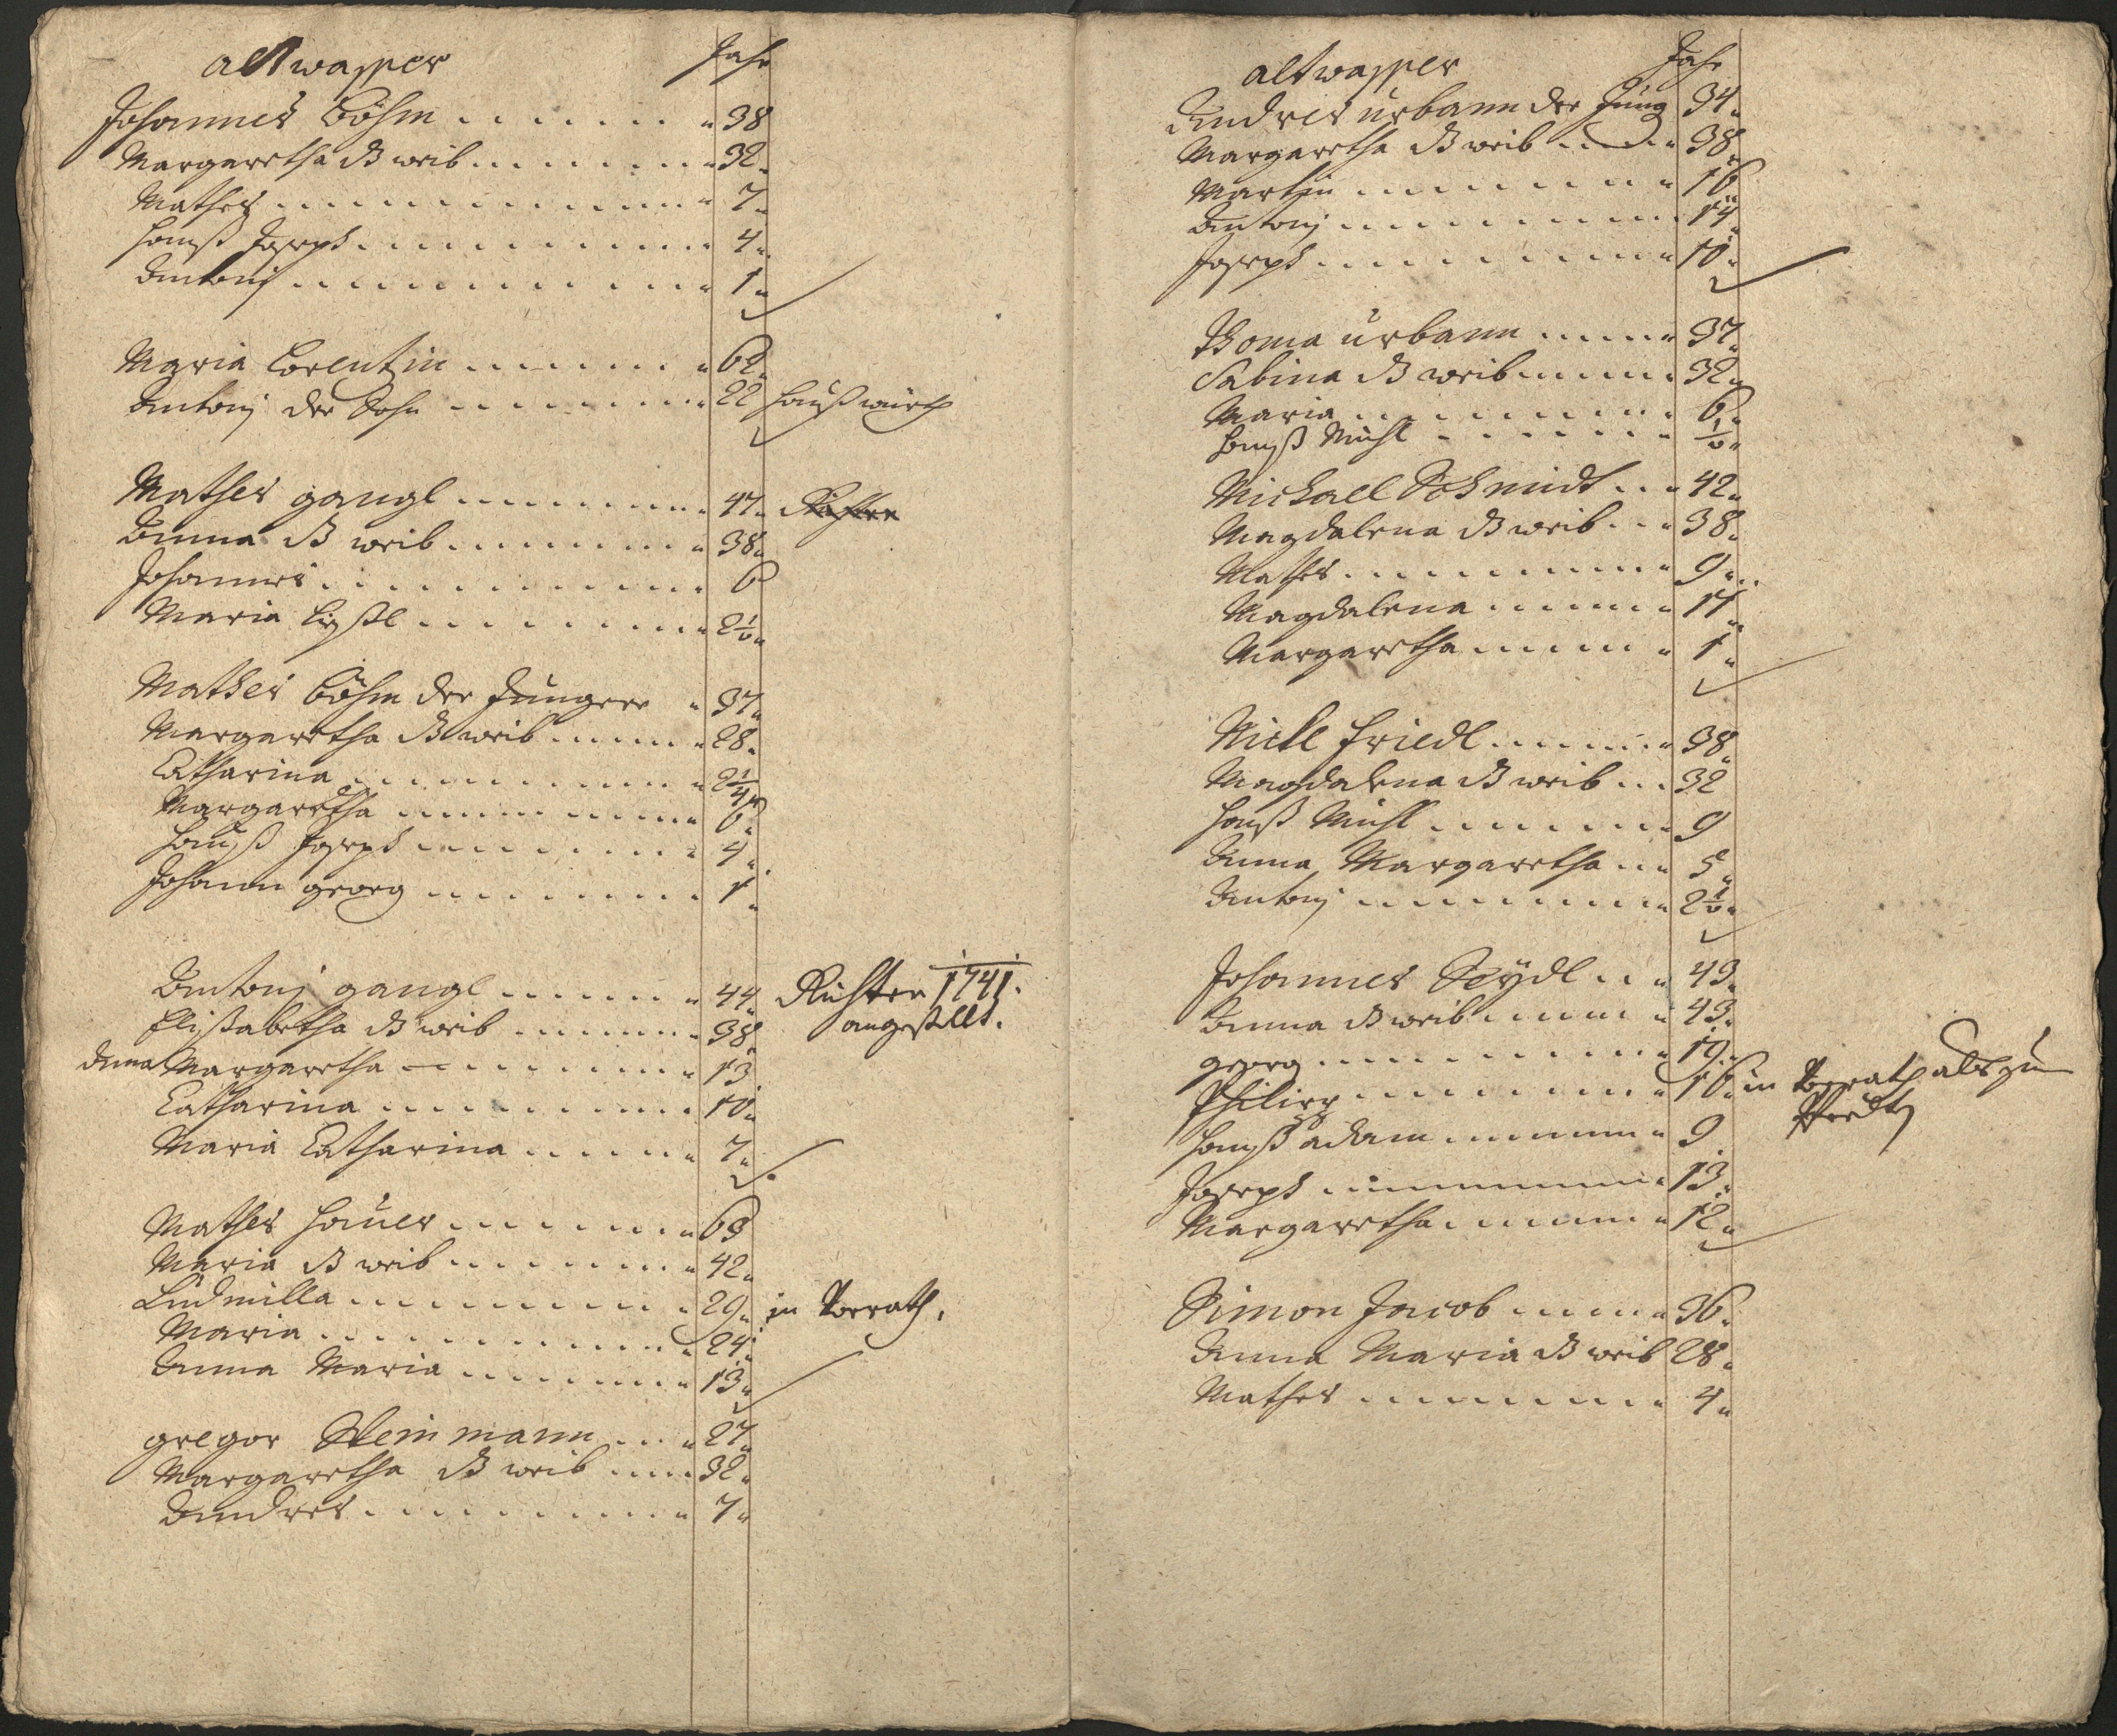 altwasser Jahr
Johannes Böhm 38
Margaretha ß weib 32
Mathes 7
Hanß Joseph 4
Antonj 1
Maria Lorentzin 62
Antonj der Sohn 22 Haußwürth
Mathes gangl 47 Richter
Anna ß weib 38
Johannes 6
Maria Lißl 2½
Mathes Böhm der Jüngere 37
Margaretha ß weib 28
Catharina 2¼
Margaretha 6
Hanß Joseph 4
Johann georg 1
Antonj gangl 44 Richter 1741.
Elisabetha ß weib 38 angestellt.
Anna Margaretha 13
Catharina 10
Maria Catharina 7
Mathes Hauer 63
Maria ß weib 42
Ludmilla 29 in
Maria 24
Anna Maria 13
gregor Steinmann 27
Margaretha ß weib 32
Andres 7
altwasser Jahr
Andres urbann der Jüng 34
Margaretha ß weib 38
Martin 16
Antonj 14
Joseph 10
Thoma urbann 37
Sabina ß weib 32
Maria 6
Hanß Michl ½
Michael Schmidt 42
Magdalena ß weib 38
Mathes 9
Magdalena 11
Margaretha 1
Nickl friedl 38
Magdalena ß weib 32
Hanß Michl 9
Anna Margaretha 5
Antonj 2½
Johannes Seÿdl 43
Anna ß weib 43
georg 19
Philipp 16 in
Hanß adam 9
Joseph 13
Margaretha 12
Simon Jacob 36
Anna Maria ß weib 28
Mathes 4